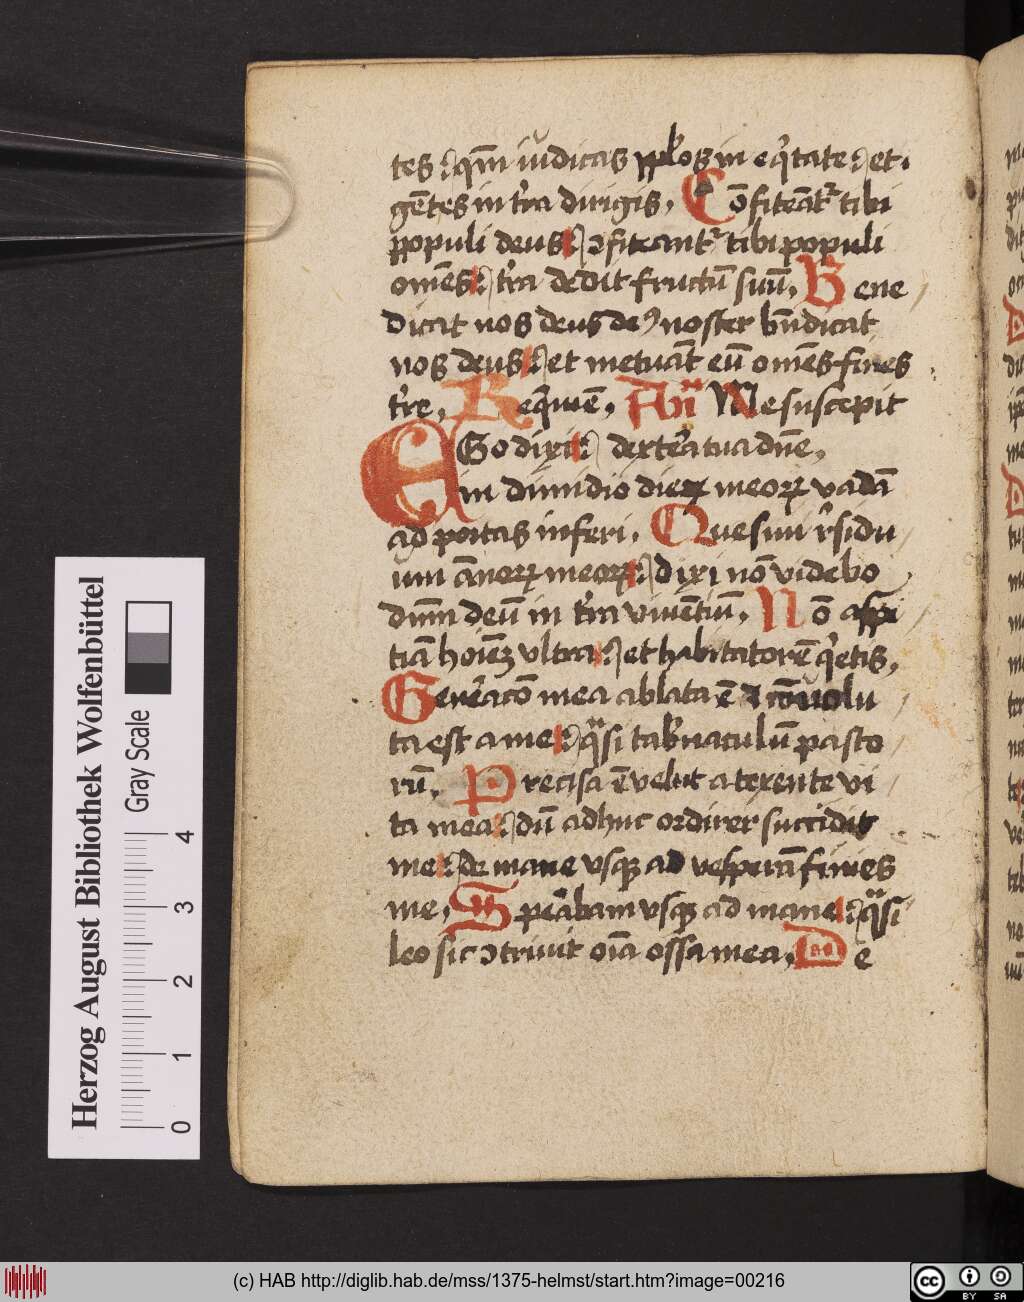 tes : qm̄ iudicas pplos in eq̇tate : et
gētes in tr̄a dirigis. Cōfiteātr tibi
populi deus : ɔfiteantr tibi populi
omēs : tr̄a dedit fructū suū. Bene
dicat nos deus deꝯ noster bn̄dicat
nos deus : et metuāt eū omēs fines
tr̄re. Req̇uiē. An̄ Me suscepit
EGo dixi : dextera tua dn̄e.
in dimidio dieꝝ meoꝝ vadā
ad portas inferi. Quesiui rsidu
um ānoꝝ meoꝝ : dixi nō videbo
dn̄m deū in tr̄ra viuētiū. Nō aspi
tiā hoiēꝫ vltra : et habitatorē q̇etis.
Generacō mea ablata ē ⁊ cōuolu
ta est a me : qͣsi tabnaculū pasto
rū. Precisa ē velut a texente vi
ta mea : dū adhuc ordirer succidit
me : de mane vsqꝫ ad vesperā finies
me. Speābam vsqꝫ ad mane : qͣsi
leo sic ɔtriuit oīa ossa mea. De
Herzog August Bibliothek Wolfenbüttel
Gray Scale
0 1 2 3 4
(c) HAB http://diglib.hab.de/mss/1375-helmst/start.htm?image=00216
cc BY SA